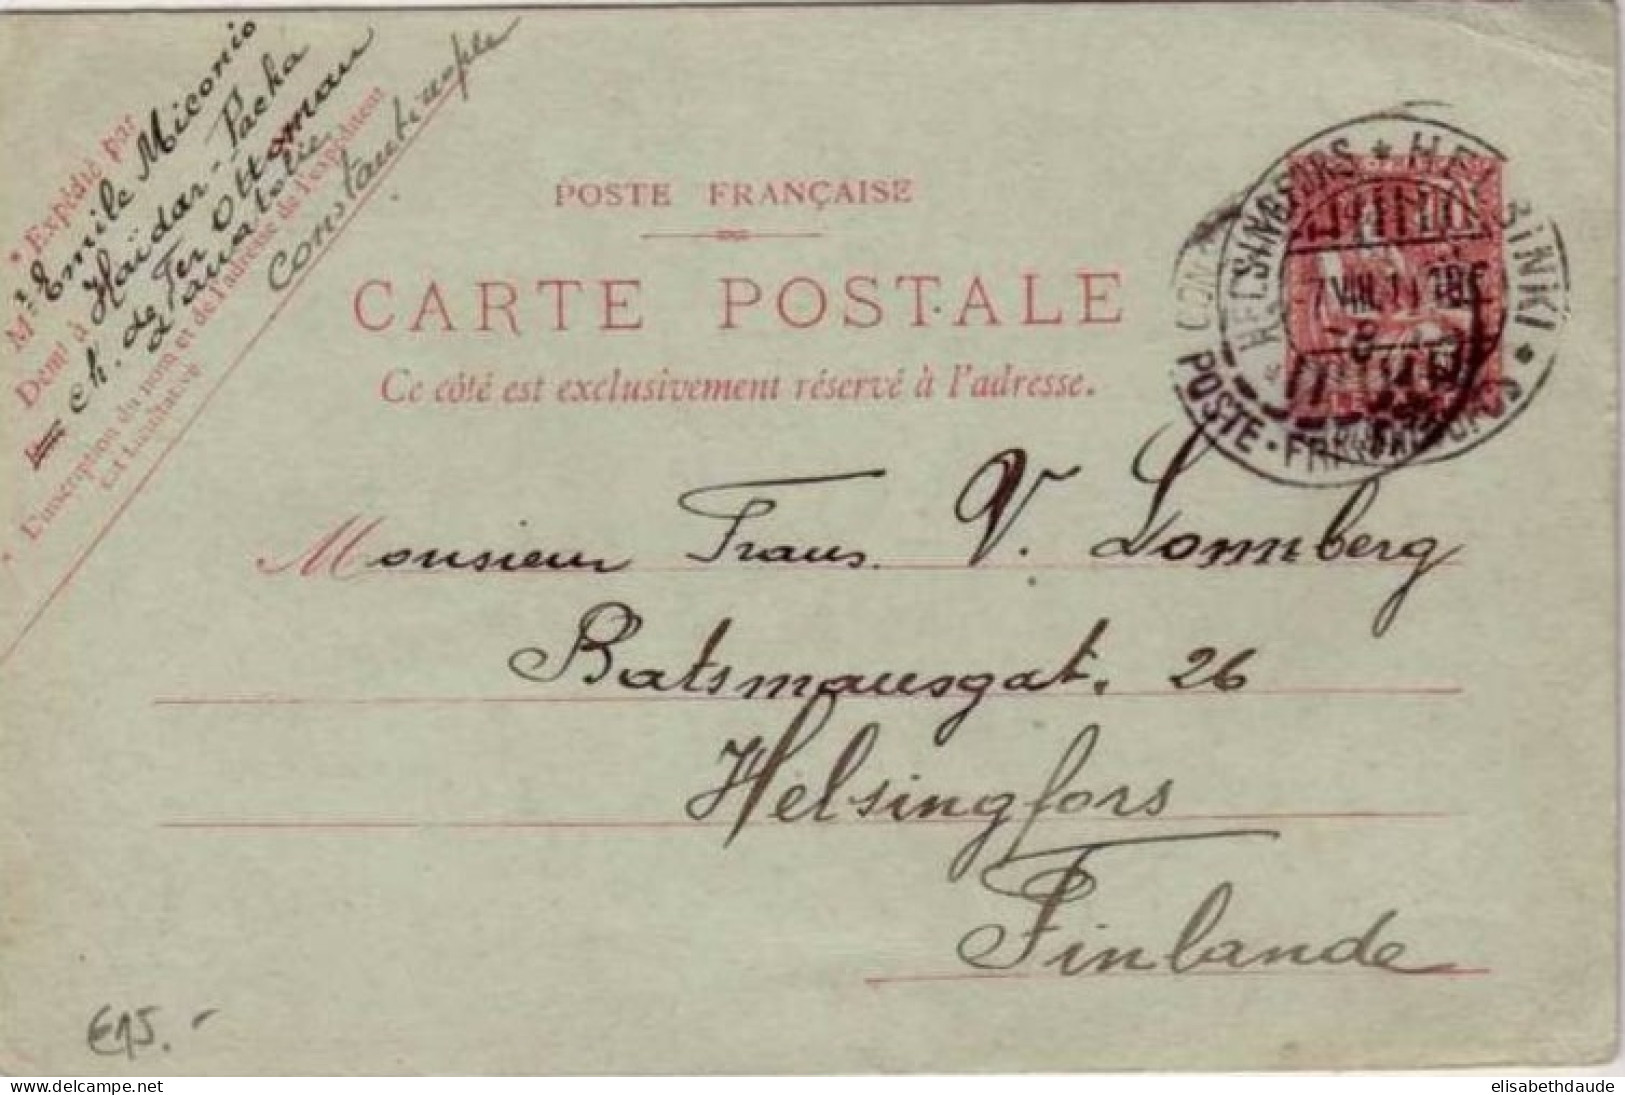 * Expédié par
Mr Emile Miconio
Demt à Haïdar-Pacha
Ch. de Fer Ottoman
d'Anatolie
Constantinople
L'inscription du nom et de l'adresse de l'expéditeur
est facultative
POSTE FRANÇAISE
CARTE POSTALE
Ce côté est exclusivement réservé à l'adresse.
HELSINGFORS * HELSINKI *
POSTE-FRANÇAISE
Monsieur Frans. V. Lonnberg
Batsmansgat. 26
Helsingfors
Finlande
€15.-
elisabethdaude